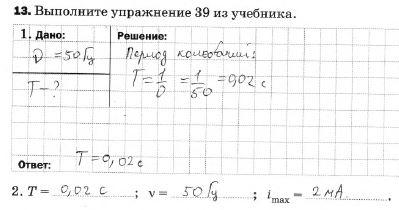 13. Выполните упражнение 39 из учебника.
1. Дано:
Решение:
ν = 50 Гц
T - ?
Период колебаний:
T = 1/ν = 1/50 = 0,02 с
Ответ: T = 0,02 с
2. T = 0,02 с ; ν = 50 Гц ; i max = 2 мА.